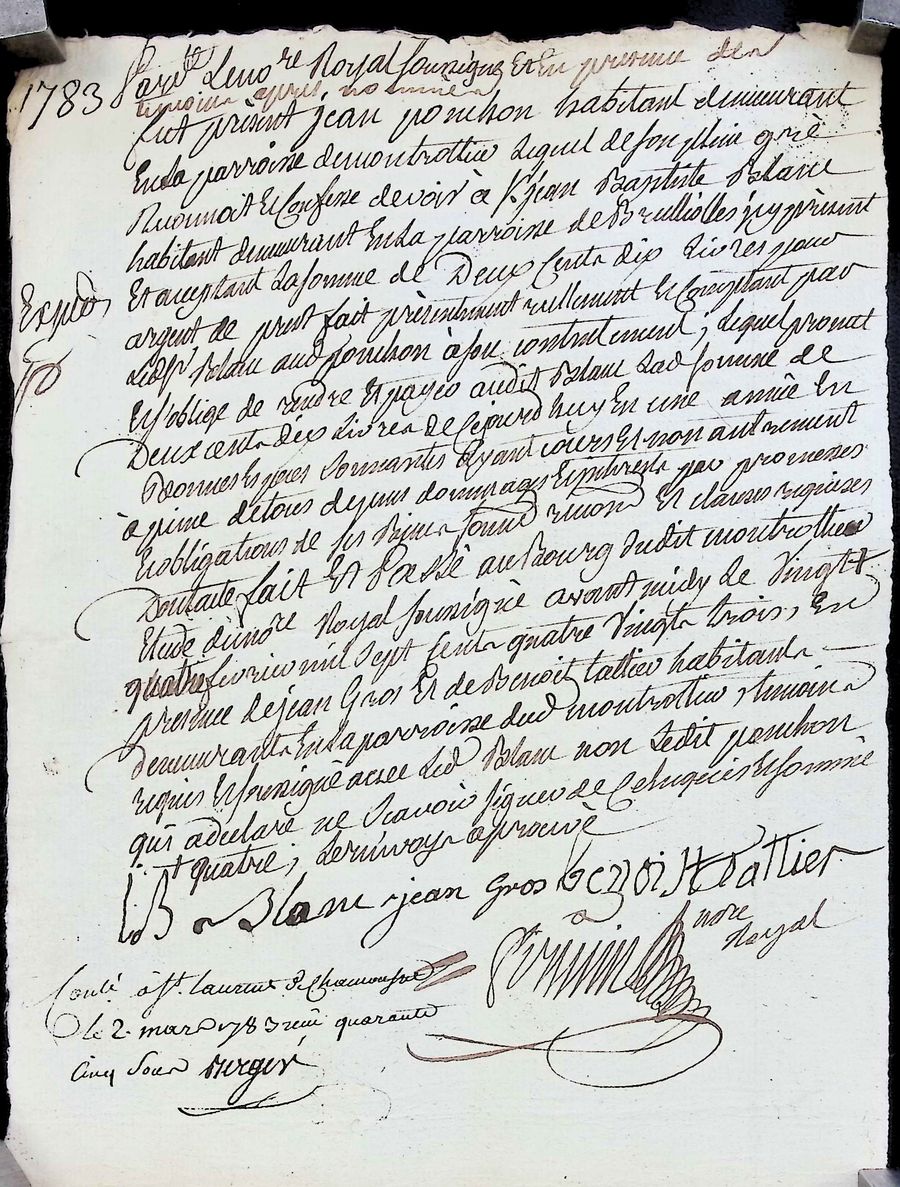 1783 Pardt Le no.re Royal soussigné Et En presence des
temoins apres nommés
fut présent jean ponchon habitant demeurant
En La parroisse de montrottier Lequel de son plein grè
Reconnoit Et Confesse devoir à Sr. jean Baptiste Blanc
habitant demeurant En La parroisse de Brulliolles icy présent
Et acceptant La somme de Deux Cents dix Livres pour
Expdiè
argent de prest fait présentement réellement Et Comptant par
Led Sr. Blanc aud ponchon à son contentement; Lequel promet
Et s'oblige de rendre Et payer audit Blanc Lad somme de
Deux cents dix Livres de Cejourd'huy En une année En
Bonnes Especes sonnantes ayant cours Et non autrement
à peine de tous depens dommages Et interets par promesses
Et obligations de ses Biens soumd renond Et clauses requises
Dont acte fait Et Passé au Bourg dudit montrottier
Etude du no.re Royal soussigné avant midy Le Vingtt
quatre fevrier mil sept Cents quatre Vingts trois, En
presence de jean Gros Et de Benoit tallier habitants
demeurants En La parroisse dud montrottier, temoins
requis Et soussignè avec Led Blanc non Ledit ponchon
qui a declaré ne Scavoir signer de Ce Enquis Et sommé
t quatre; Le renvoy aprouvè
J B Blanc jean Gros benoit tallier
no.re
Royal
Conlé. à St. Laurent de Chamousset
le 2. mars 1783 reçu quarante
Cinq Sous Berger